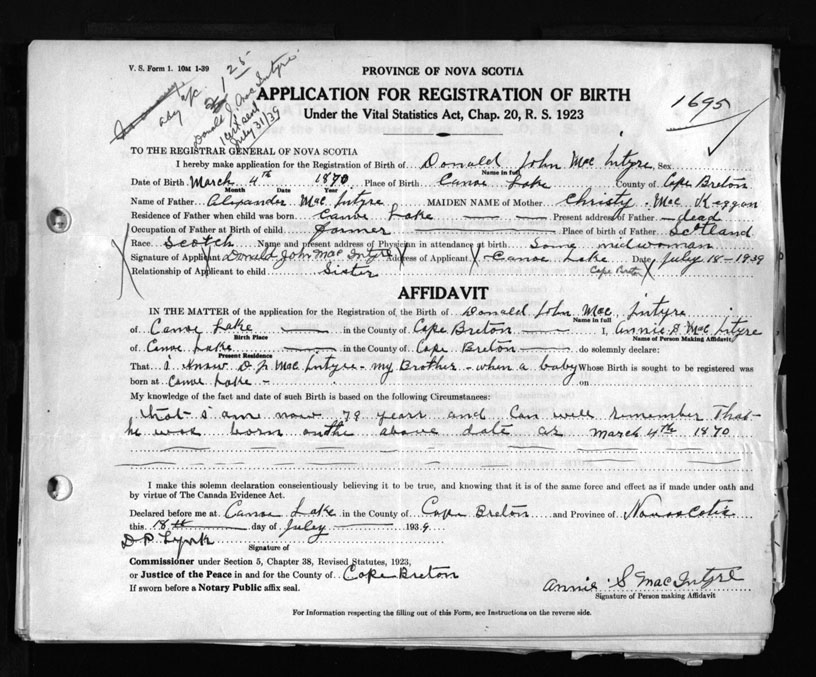 V. S. Form 1. 10M 1-39
1 25
Donald J. Mac Intyre
Cert sent
July 31/39
PROVINCE OF NOVA SCOTIA
APPLICATION FOR REGISTRATION OF BIRTH
Under the Vital Statistics Act, Chap. 20, R. S. 1923
1695
TO THE REGISTRAR GENERAL OF NOVA SCOTIA
I hereby make application for the Registration of Birth of Donald John Mac Intyre Sex
Name in full
Date of Birth March 4th 1870 Place of Birth Canoe Lake County of Cape Breton
Month Date Year
Name of Father Alexander Mac Intyre MAIDEN NAME of Mother Christy Mac Keggan
Residence of Father when child was born Canoe Lake Present address of Father dead
Occupation of Father at Birth of child Farmer Place of birth of Father Scotland
Race Scotch Name and present address of Physician in attendance at birth Some midwoman
Signature of Applicant Donald John Mac Intyre Address of Applicant Canoe Lake Date July 18-1939
Relationship of Applicant to child Sister Cape Breton
AFFIDAVIT
IN THE MATTER of the application for the Registration of the Birth of Donald John Mac Intyre
Name in full
of Canoe Lake in the County of Cape Breton I, Annie S Mac Intyre
Birth Place Name of Person Making Affidavit
of Canoe Lake in the County of Cape Breton do solemnly declare:
Present Residence
That I Know D. J. Mac Intyre - my Brother - when a baby Whose Birth is sought to be registered was
born at Canoe Lake - on
My knowledge of the fact and date of such Birth is based on the following Circumstances:
that I am now 79 years and Can well remember That
he was born on the above date as March 4th 1870
I make this solemn declaration conscientiously believing it to be true, and knowing that it is of the same force and effect as if made under oath and
by virtue of The Canada Evidence Act.
Declared before me at Canoe Lake in the County of Cape Breton and Province of Nova Scotia
this 18th day of July 1939
D P Lynk
Signature of
Commissioner under Section 5, Chapter 38, Revised Statutes, 1923,
or Justice of the Peace in and for the County of Cape Breton
If sworn before a Notary Public affix seal.
Annie S MacIntyre
Signature of Person making Affidavit
For Information respecting the filling out of this Form, see Instructions on the reverse side.